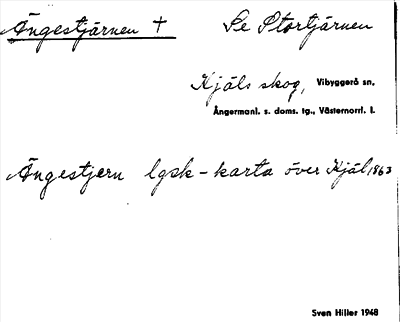 Ängestjärnen † Se Stortjärnen
Kjäls skog, Vibyggerå sn,
Ångermanl. s. doms. tg., Västernorrl. l.
Ängestjern lgsk-karta över Kjäl 1863
Sven Hiller 1948